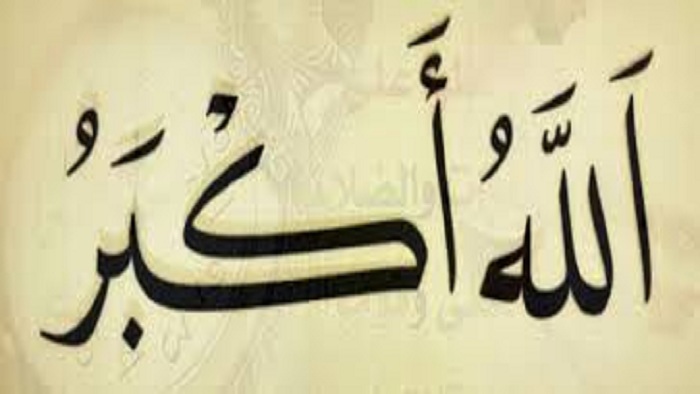 اَللَّهُ أَكْبَرُ